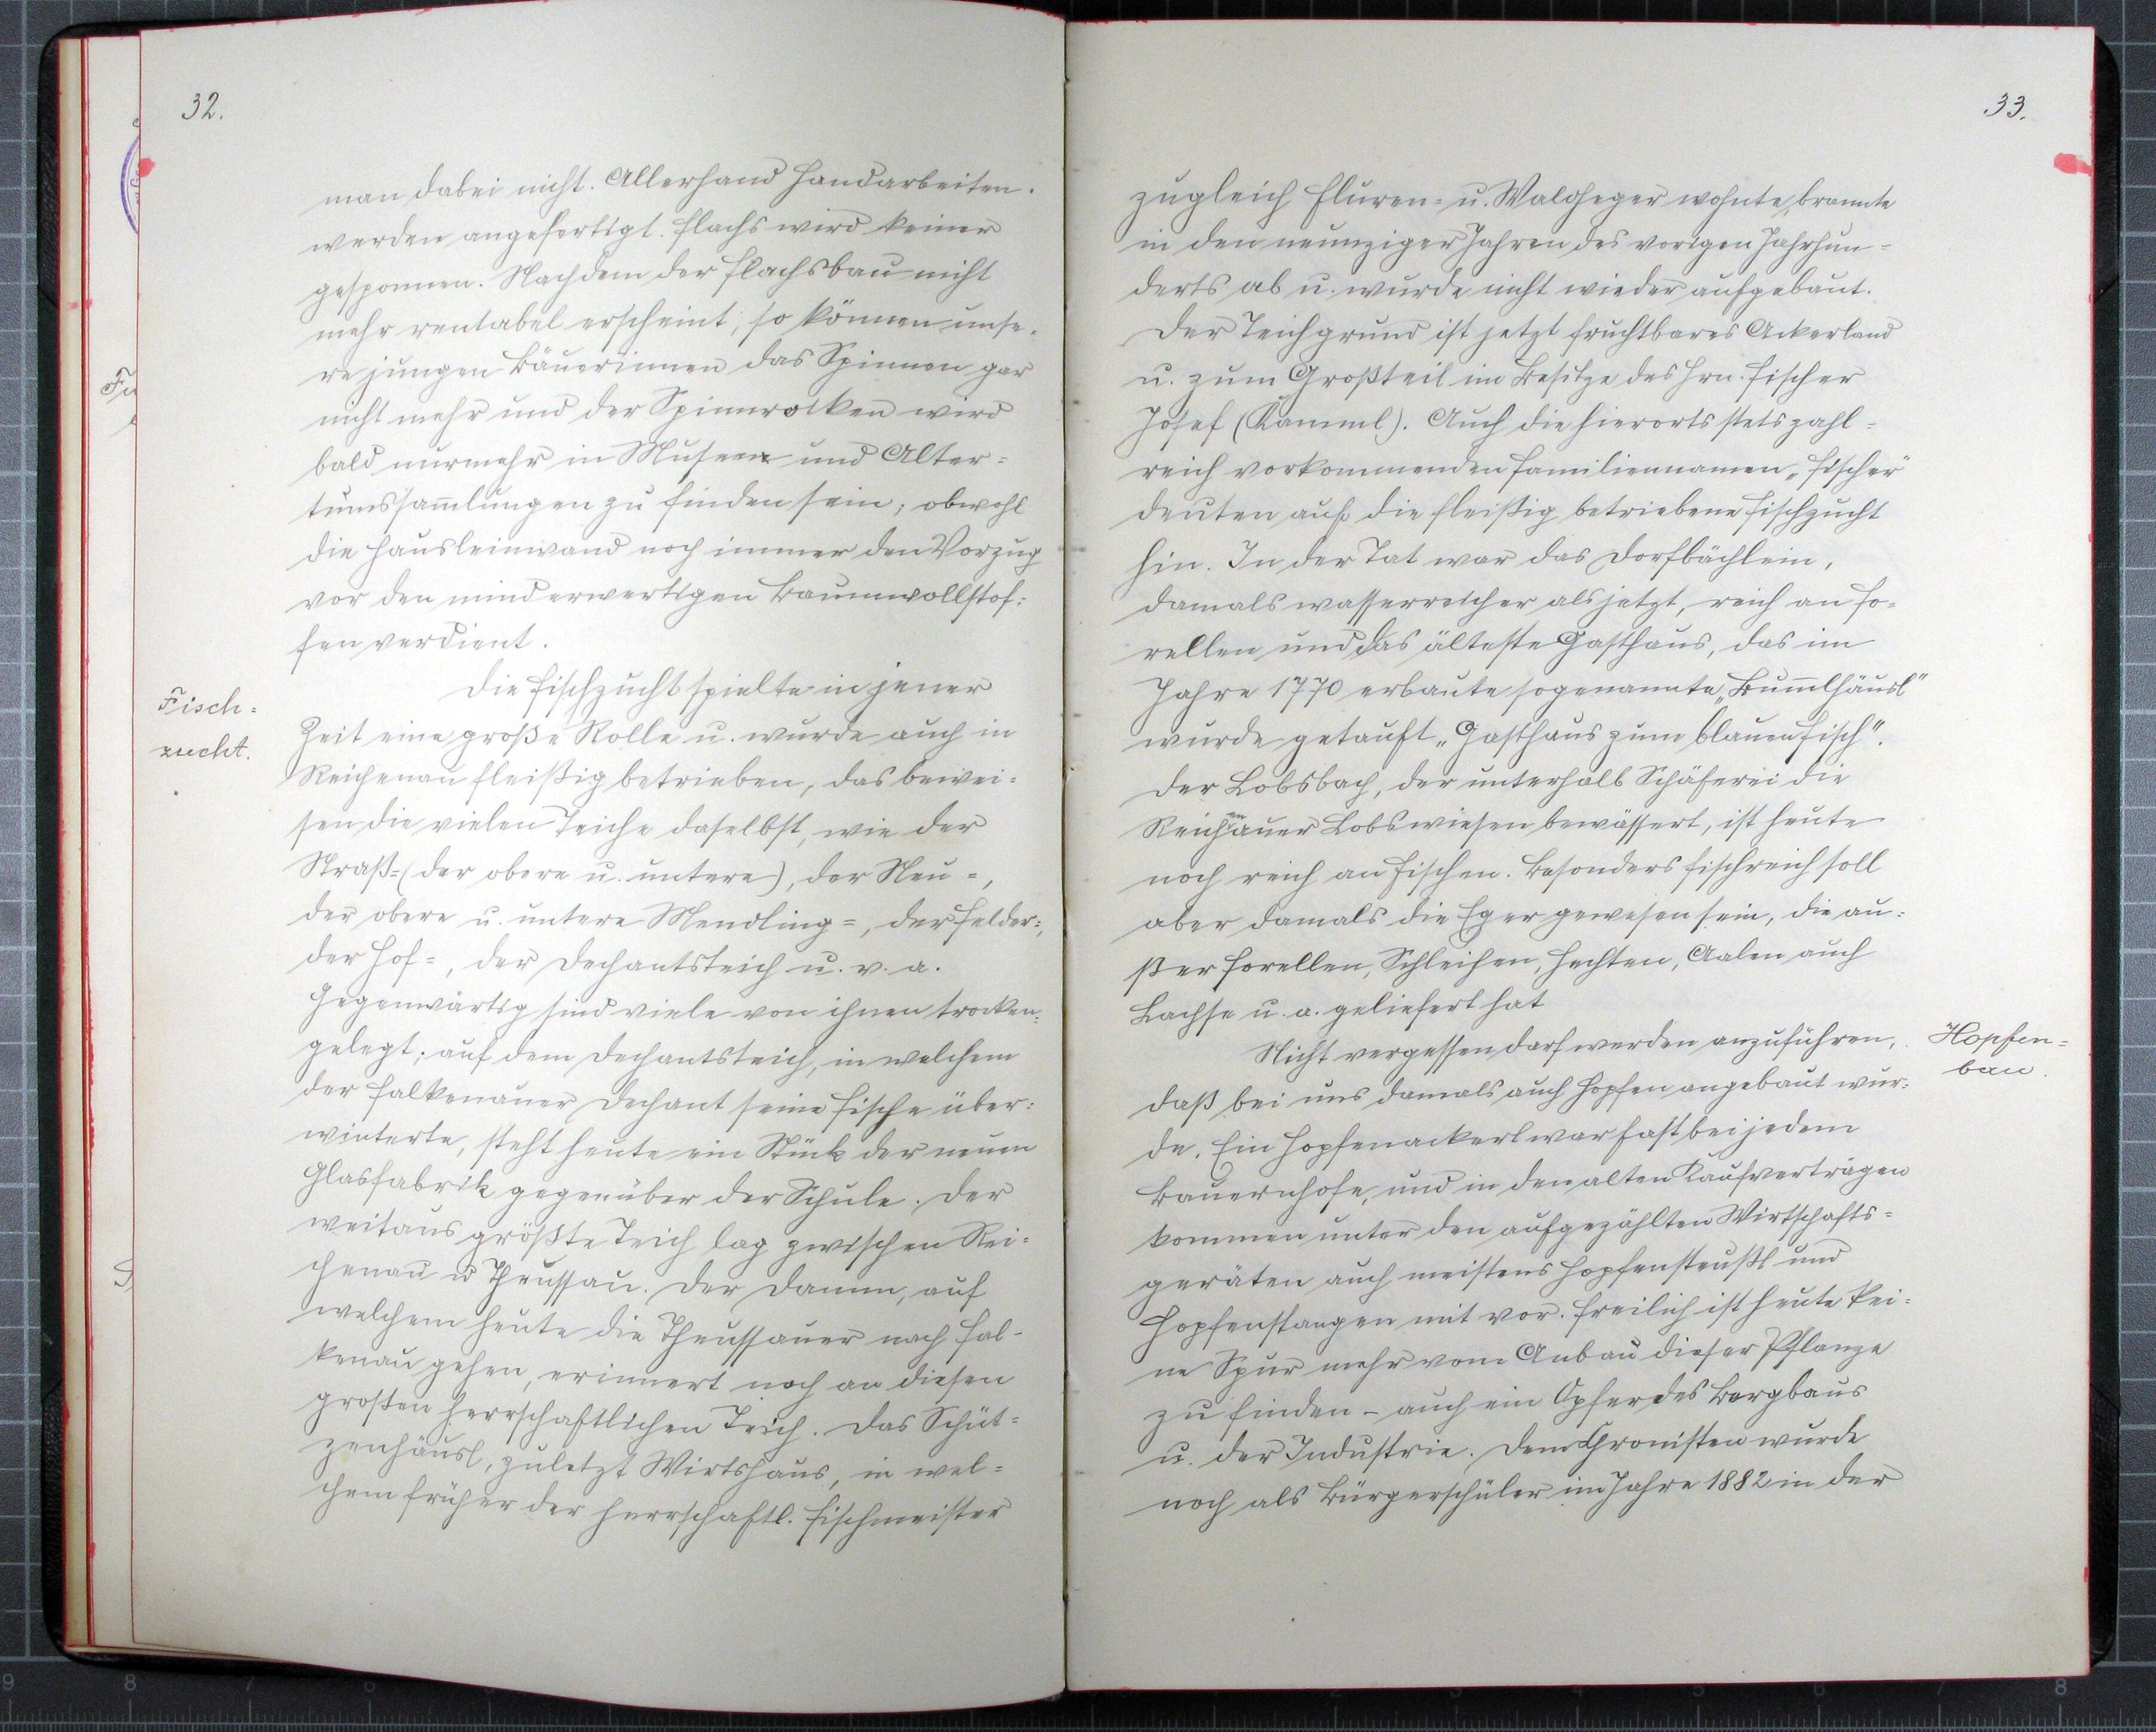 32.
man dabei nicht. Allerhand Handarbeiten
werden angefertigt. Flachs wird keiner
gesponnen. Nachdem der Flachsbau nicht
mehr rentabel erscheint, so können unse-
re jungen Bäuerinnen das Spinnen gar
nicht mehr und der Spinnrocken wird
bald nurmehr in Museen und Alter=
tumssam̅lungen zu finden sein; obwohl
die Hausleinwand noch immer den Vorzug
vor den minderwertigen Baumwollstof=
fen verdient.
Fisch=
zucht.
Die Fischzucht spielte in jener
Zeit eine große Rolle u. wurde auch in
Reichenau fleißig betrieben, das bewei=
sen die vielen Teiche daselbst, wie der
Straß=(der obere u. untere), der Neu=,
der obere u. untere Mendling=, der Felder=,
der Hof=, der Dechantsteich u. v. a.
Gegenwärtig sind viele von ihnen trocken=
gelegt; auf dem Dechantsteich, in welchem
der Falkenauer Dechant seine Fische über=
winterte, steht heute ein Stück der neuen
Glasfabrik gegenüber der Schule. Der
weitaus größte Teich lag zwischen Rei=
chenau u Theussau. Der Damm, auf
welchem heute die Theussauer nach Fal-
kenau gehen, erinnert noch an diesen
großen herrschaftlichen Teich. Das Schüt=
zenhäusl, zuletzt Wirtshaus, in wel=
chem früher der herrschaftl. Fischmeister
33.
zugleich Fluren= u. Waldheger wohnte, brannte
in den neunziger Jahren des vorigen Jahrhun=
derts ab u. wurde nicht wieder aufgebaut.
Der Teichgrund ist jetzt fruchtbares Ackerland
u. zum Großteil im Besitze des Hrn. Fischer
Josef (Kamml). Auch die hierorts stets zahl=
reich vorkommenden Familiennamen „Fischer"
deuten auf die fleißig betriebene Fischzucht
hin. In der Tat war das Dorfbächlein,
damals wasserreicher als jetzt, reich an Fo=
rellen und das älteste Gasthaus, das im
Jahre 1770 erbaute sogenannte „Bum̅lhäusl"
wurde getauft „Gasthaus zum blauen Fisch".
Der Lobsbach, der unterhalb Schäferei die
Reichenauer Lobswiesen bewässert, ist heute
noch reich an Fischen. Besonders fischreich soll
aber damals die Eger gewesen sein, die au=
ßer Forellen, Schleihen, Hechten, Aalen auch
Lachse u. a. geliefert hat
Nicht vergessen darf werden anzuführen,
Hopfen=
bau.
daß bei uns damals auch Hopfen angebaut wur=
de. Ein Hopfenackerl war fast bei jedem
Bauernhofe, und in den alten Kaufverträgen
kommen unter den aufgezählten Wirtschafts=
geräten auch meistens Hopfensteußl und
Hopfenstangen mit vor. Freilich ist heute kei=
ne Spur mehr vom Anbau dieser Pflanze
zu finden - auch ein Opfer des Bergbaus
u. der Industrie. Dem Chronisten wurde
noch als Bürgerschüler im Jahre 1882 in der